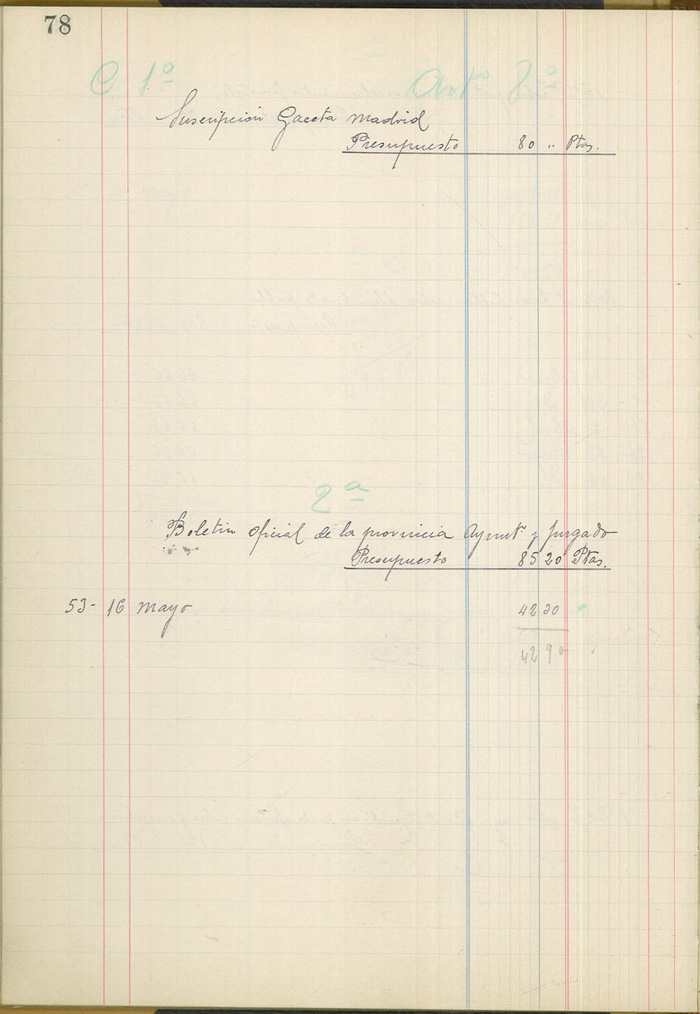 78
C. 1º Artº 8º
Suscripción Gaceta Madrid
Presupuesto 80 " Ptas.
2ª
Boletin oficial de la provincia Ayuntº y Juzgado
Presupuesto 85 20 Ptas.
53 - 16 mayo 42 90
42 90